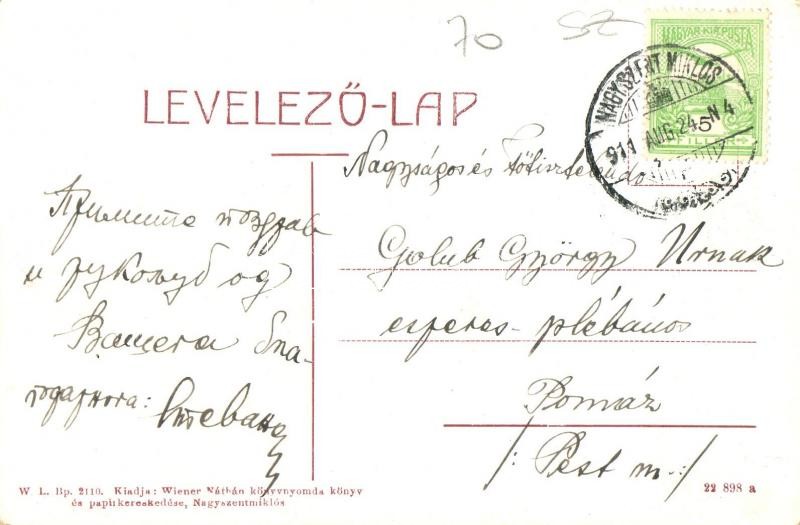 70 SZ
MAGYAR KIR. POSTA
NAGYSZENT MIKLÓS
911 AUG. 24. N 4
5
FILLÉR
LEVELEZŐ-LAP
Примите поздрав
и рукољуб од
Вашега бла-
годарнога: Стевана
Nagyságos és Főtisztelendő
Golub György Urnak
esperes-plébános
Pomáz
/: Pest m. :/
W L. Bp. 2110. Kiadja: Wiener Náthán könyvnyomda könyv
és papirkereskedése, Nagyszentmiklós
22 898 a